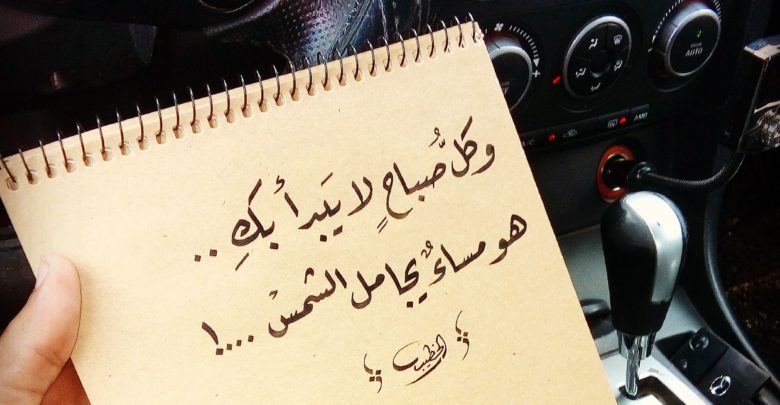 وكلُّ صباحٍ لا يَبدأ بكِ ..
هو مساءٌ يجامل الشمسْ ....!
الخطيب
AUTO